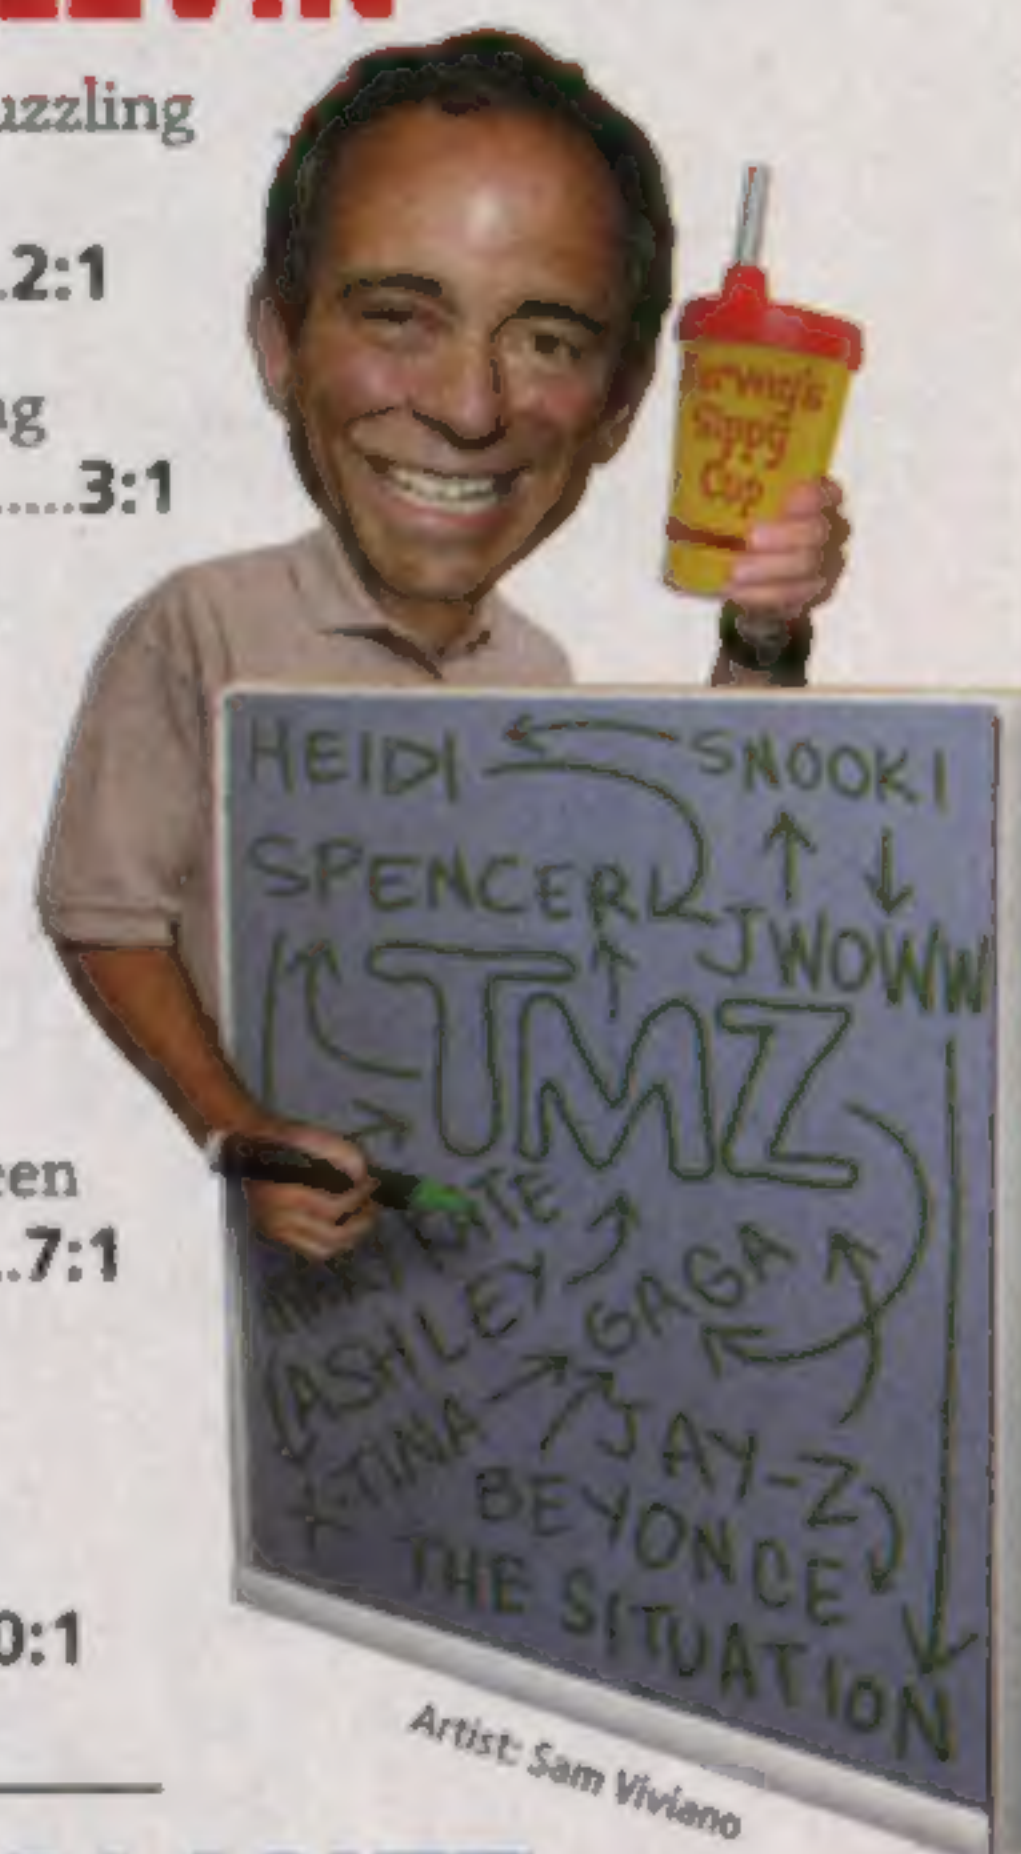 LEVIN
uzzling
.2:1
ng
.....3:1
een
..7:1
0:1
Sippy
Cup
HEIDI SNOOKI
SPENCER JWOWW
TMZ
KATE
ASHLEY GAGA
X-TINA JAY-Z
BEYONCE
THE SITUATION
Artist: Sam Viviano